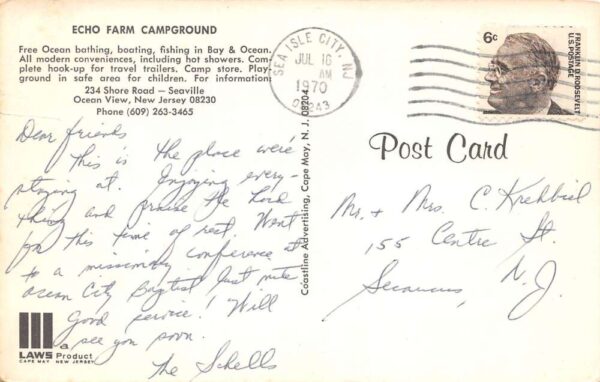 ECHO FARM CAMPGROUND
Free Ocean bathing, boating, fishing in Bay & Ocean.
All modern conveniences, including hot showers. Com-
plete hook-up for travel trailers. Camp store. Play-
ground in safe area for children. For information:
234 Shore Road — Seaville
Ocean View, New Jersey 08230
Phone (609) 263-3465
Dear friends
This is the place we're
staying at. Enjoying every-
thing and praise the Lord
for this time of rest. Went
to a missionary conference at
Ocean City Baptist last nite
Good service! Will
see you soon.
The Schells
LAWS Product
CAPE MAY NEW JERSEY
Coastline Advertising, Cape May, N. J. 08204
SEA ISLE CITY, NJ
JUL 16
AM
1970
6c
FRANKLIN D. ROOSEVELT
U.S. POSTAGE
Post Card
Mr. + Mrs. C. Krehbiel
155 Centre St.
Secaucus, N. J.